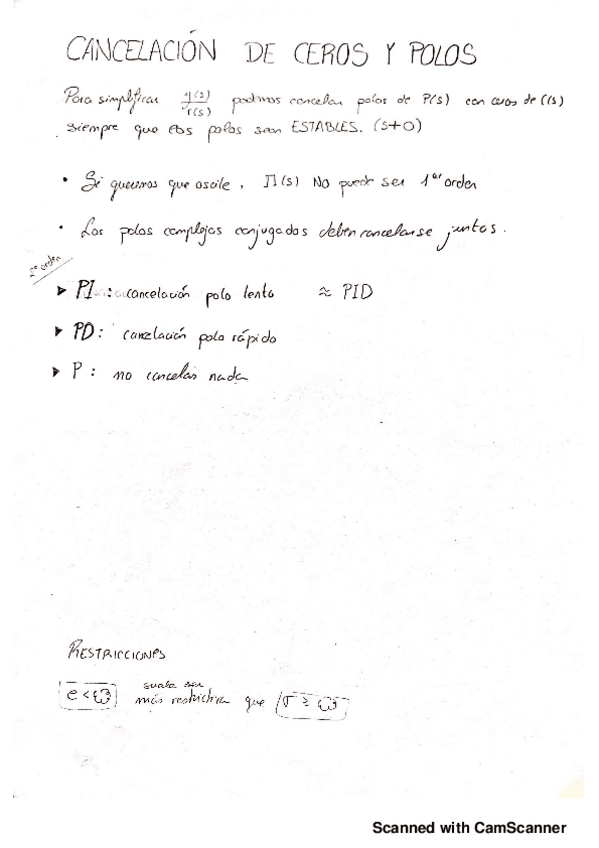 CANCELACIÓN DE CEROS Y POLOS
Para simplificar y(s)/r(s) podemos cancelar polos de P(s) con ceros de C(s)
siempre que esos polos sean ESTABLES. (s+0)
• Si queremos que oscile, Π(s) No puede ser 1er orden
• Los polos complejos conjugados deben cancelarse juntos.
2º orden
▸ PI : cancelación polo lento ≈ PID
▸ PD : cancelación polo rápido
▸ P : no cancelas nada
RESTRICCIONES
suele ser
e < más restrictiva que σ ≥
Scanned with CamScanner